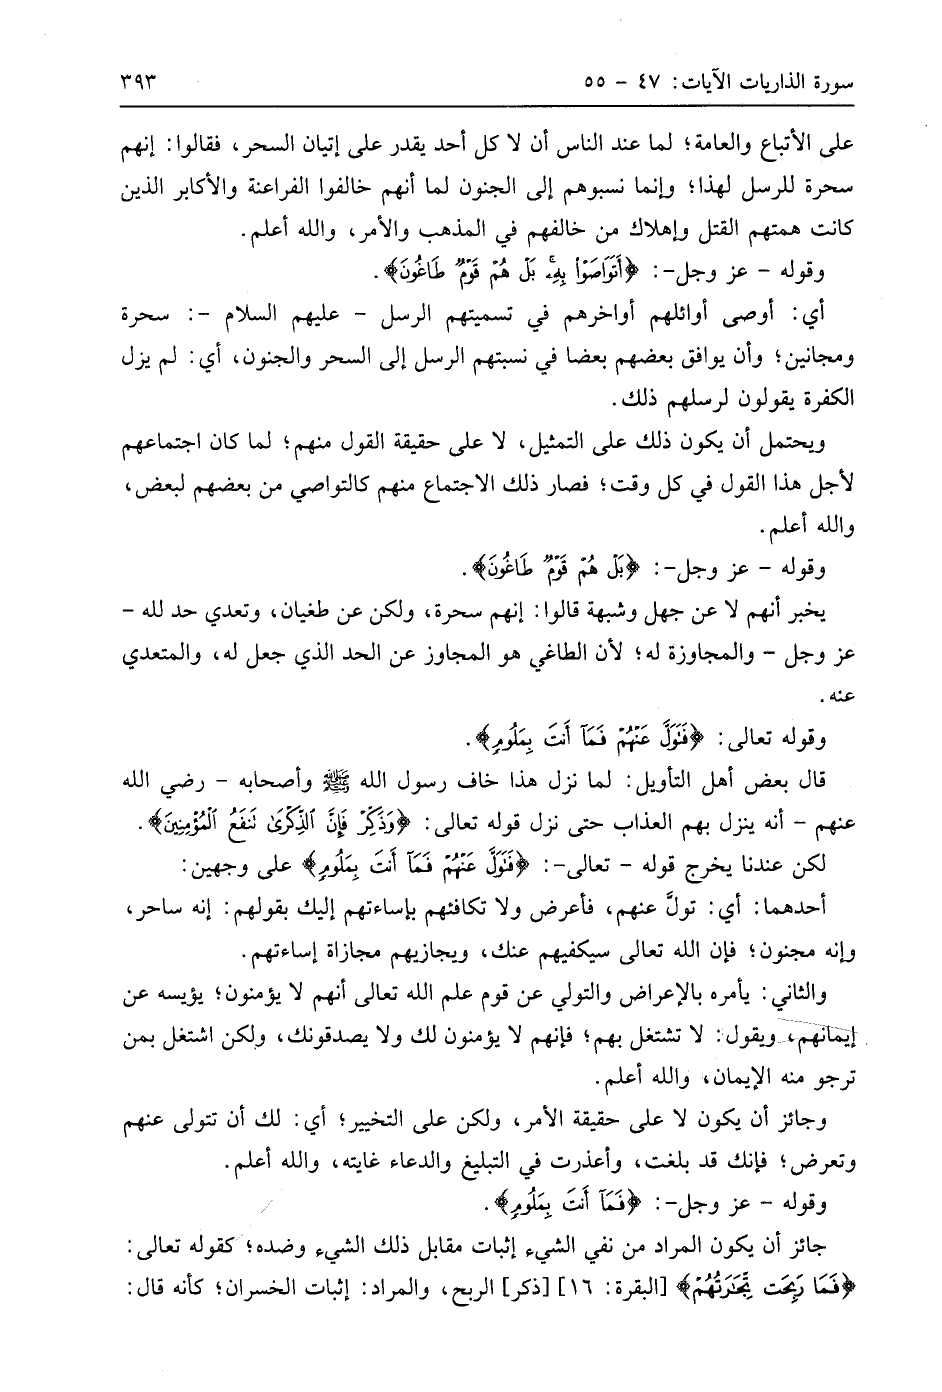 سورة الذاريات الآيات: ٤٧ - ٥٥ ٣٩٣
على الأتباع والعامة؛ لما عند الناس أن لا كل أحد يقدر على إتيان السحر، فقالوا: إنهم
سحرة للرسل لهذا؛ وإنما نسبوهم إلى الجنون لما أنهم خالفوا الفراعنة والأكابر الذين
كانت همتهم القتل وإهلاك من خالفهم في المذهب والأمر، والله أعلم.
وقوله - عز وجل-: ﴿أَتَوَاصَوْا۟ بِهِۦۚ بَلْ هُمْ قَوْمٌ طَاغُونَ﴾.
أي: أوصى أوائلهم أواخرهم في تسميتهم الرسل - عليهم السلام -: سحرة
ومجانين؛ وأن يوافق بعضهم بعضا في نسبتهم الرسل إلى السحر والجنون، أي: لم يزل
الكفرة يقولون لرسلهم ذلك.
ويحتمل أن يكون ذلك على التمثيل، لا على حقيقة القول منهم؛ لما كان اجتماعهم
لأجل هذا القول في كل وقت؛ فصار ذلك الاجتماع منهم كالتواصي من بعضهم لبعض،
والله أعلم.
وقوله - عز وجل-: ﴿بَلْ هُمْ قَوْمٌ طَاغُونَ﴾.
يخبر أنهم لا عن جهل وشبهة قالوا: إنهم سحرة، ولكن عن طغيان، وتعدي حد لله -
عز وجل - والمجاوزة له؛ لأن الطاغي هو المجاوز عن الحد الذي جعل له، والمتعدي
عنه.
وقوله تعالى: ﴿فَتَوَلَّ عَنْهُمْ فَمَآ أَنتَ بِمَلُومٍ﴾.
قال بعض أهل التأويل: لما نزل هذا خاف رسول الله ﷺ وأصحابه - رضي الله
عنهم - أنه ينزل بهم العذاب حتى نزل قوله تعالى: ﴿وَذَكِّرْ فَإِنَّ ٱلذِّكْرَىٰ نَنفَعُ ٱلْمُؤْمِنِينَ﴾.
لكن عندنا يخرج قوله - تعالى-: ﴿فَتَوَلَّ عَنْهُمْ فَمَآ أَنتَ بِمَلُومٍ﴾ على وجهين:
أحدهما: أي: تولَّ عنهم، فأعرض ولا تكافئهم بإساءتهم إليك بقولهم: إنه ساحر،
وإنه مجنون؛ فإن الله تعالى سيكفيهم عنك، ويجازيهم مجازاة إساءتهم.
والثاني: يأمره بالإعراض والتولي عن قوم علم الله تعالى أنهم لا يؤمنون؛ يؤيسه عن
إيمانهم، ويقول: لا تشتغل بهم؛ فإنهم لا يؤمنون لك ولا يصدقونك، ولكن اشتغل بمن
ترجو منه الإيمان، والله أعلم.
وجائز أن يكون لا على حقيقة الأمر، ولكن على التخيير؛ أي: لك أن تتولى عنهم
وتعرض؛ فإنك قد بلغت، وأعذرت في التبليغ والدعاء غايته، والله أعلم.
وقوله - عز وجل-: ﴿فَمَآ أَنتَ بِمَلُومٍ﴾.
جائز أن يكون المراد من نفي الشيء إثبات مقابل ذلك الشيء وضده؛ كقوله تعالى:
﴿فَمَا رَبِحَت تِّجَٰرَتُهُمْ﴾ [البقرة: ١٦] [ذكر] الربح، والمراد: إثبات الخسران؛ كأنه قال: